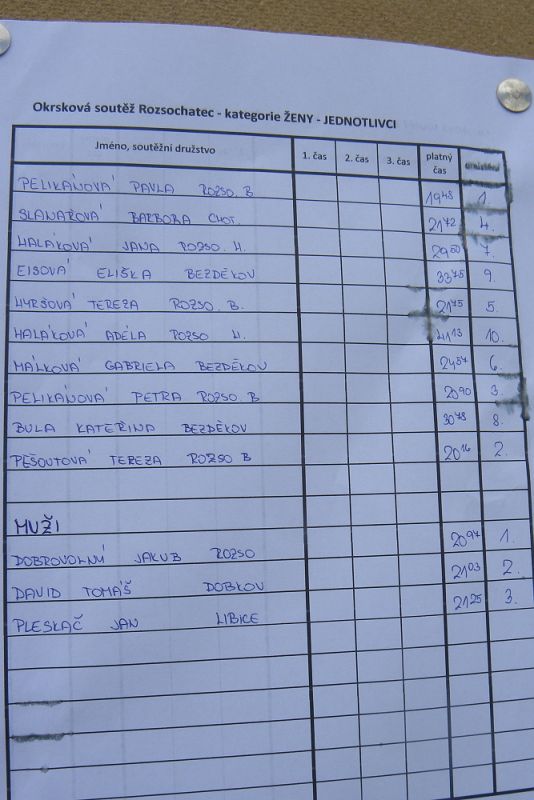 Okrsková soutěž Rozsochatec - kategorie ŽENY - JEDNOTLIVCI
Jméno, soutěžní družstvo 1. čas 2. čas 3. čas platný čas umístění
PELIKÁNOVÁ PAVLA ROZSO. B 19 48 1.
SLANAŘOVÁ BARBORA CHOT. 21 72 4.
HALÁKOVÁ JANA ROZSO. H. 29 50 7.
EISOVÁ ELIŠKA BEZDĚKOV 33 75 9.
HYRŠOVÁ TEREZA ROZSO. B. 21 75 5.
HALÁKOVÁ ADÉLA ROZSO H. 41 13 10.
MÁLKOVÁ GABRIELA BEZDĚKOV 24 57 6.
PELIKÁNOVÁ PETRA ROZSO. B 20 90 3.
BULA KATEŘINA BEZDĚKOV 30 78 8.
PEŠOUTOVÁ TEREZA ROZSO B 20 16 2.
MUŽI
DOBROVOLNÝ JAKUB ROZSO 20 97 1.
DAVID TOMÁŠ DOBKOV 21 03 2.
PLESKAČ JAN LIBICE 21 25 3.